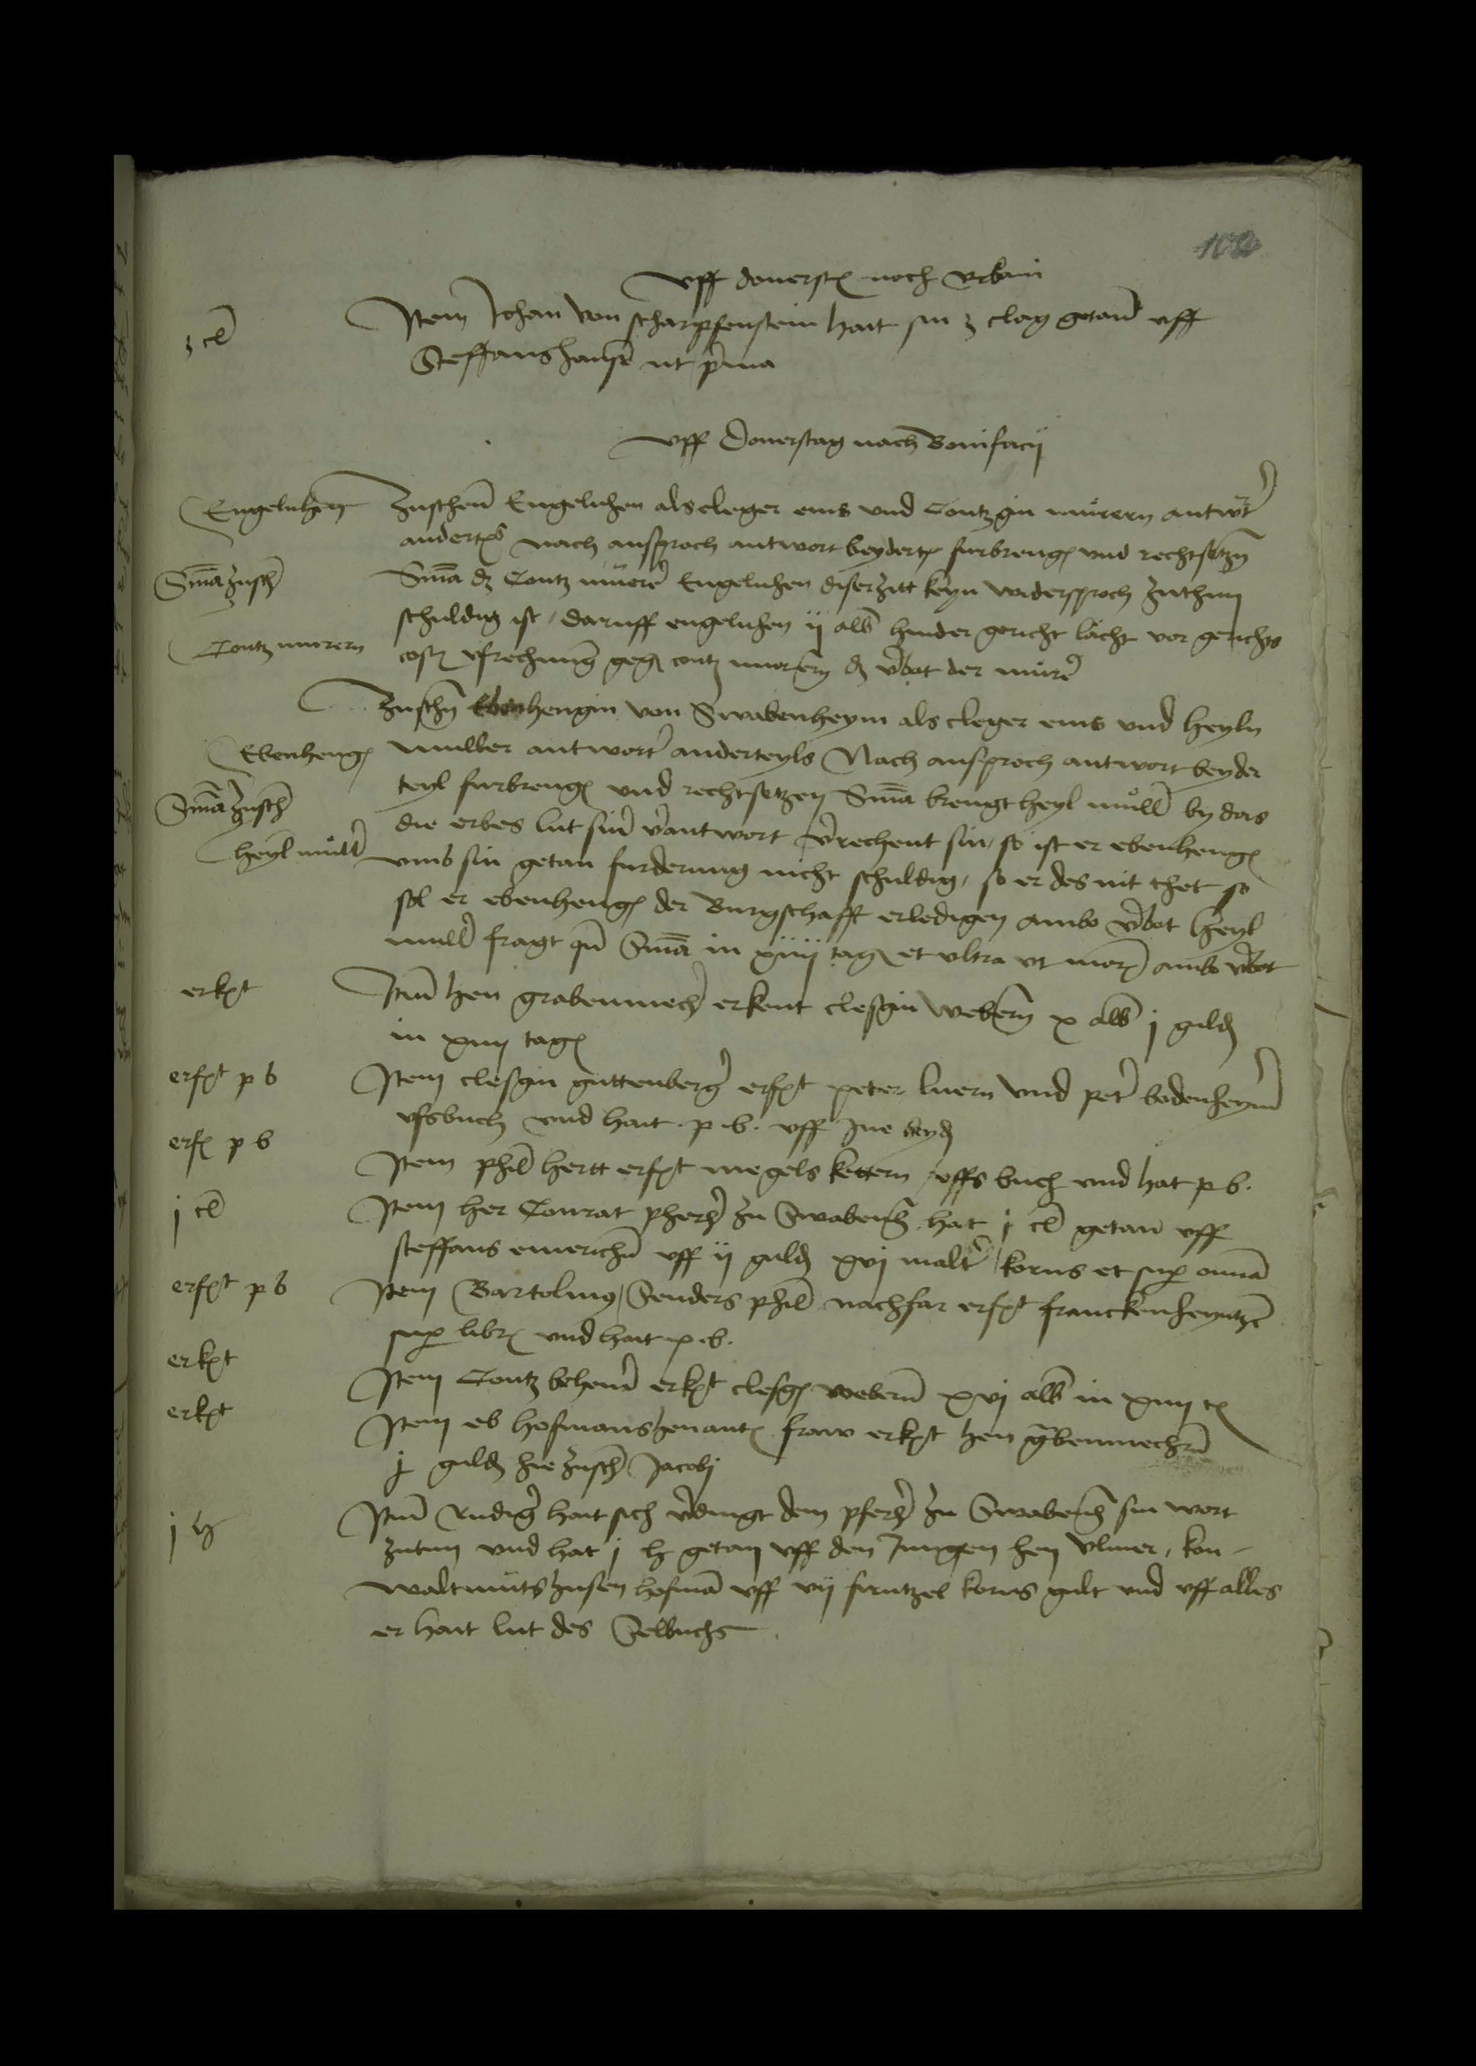 uff donerstag noch Urbani
3 cl
Item Johan von scharpfenstein hait sin 3 clag getan uff
Steffanshansen ut prima
uff Donerstag nach Bonifacij
Engelnhen
Zuschen Engelnhen als cleger eins und Contzgin murern antwurter
anderteils nach ansproch antwort beyderteil furbrengen und rechtsetzen
Sma zuschen
Sma dz Contz murer Engelnhen diser zitt keyn widersproch zuthun
schuldig ist, daruff engelnhen ij alb hinder gericht lacht vor gerichts
Contz murern
costen usrechnung gegen contz murern dz verbot der murer
Zuschen Ebenhengin von Swabenheym als cleger eins und heyln
Ebenhengen
muller antworter anderteyls Nach ansproch antwort beyder
teyl furbrengen und rechtsetzen Sma brengt heyl muller by das
Sma zuschen
die erbes lut siner verantwort verrechent sin, so ist er ebenhengen
heyl muller
umb sin getan furderung nicht schuldig, so er des nit thet so
sol er ebenhengen der Burgschafft erledigen ambo verbot heyl
muller fragt quando Sma in xiiij tagen et ultra ut moris ambo verbot
erkent
Item hen grabenmecher erkent clesgin webern x alb j gulden
in xiiij tagen
erfolgt p b
Item clesgin guttenberger erfolgt peter luern und peter bodenheymer
ufsbuch und hait p. b. uff Ine beyde
erfolgt p b
Item phil hertt erfolgt megels kettern uffs buch und hat p b.
j cl
Item her Conrat pherher zu Swabenheim hat j cl getan uff
steffans emerichen uff ij gulden xvj malter korns et super omnia
erfolgt p b
Item Bartolmeus, Senders phil nachfar erfolgt franckenheyntzen
super librum und hait p. b.
erkent
Item Contz behemer erkent clesgen webern xvj alb in xiiij t
erkent
Item eb hofmanshenants frow erkent hen grabenmechern
j gulden hie zuschen Jacobi
j h
Item Rudiger hait sich verdingt dem pferher zu Swabenheim sin wort
zutun und hat j h getan uff den Jungen hen Ulmer, kon-
waltmutshusen hofman uff vij firntzel korns gult und uff alles
er hait lut des Selbuchs